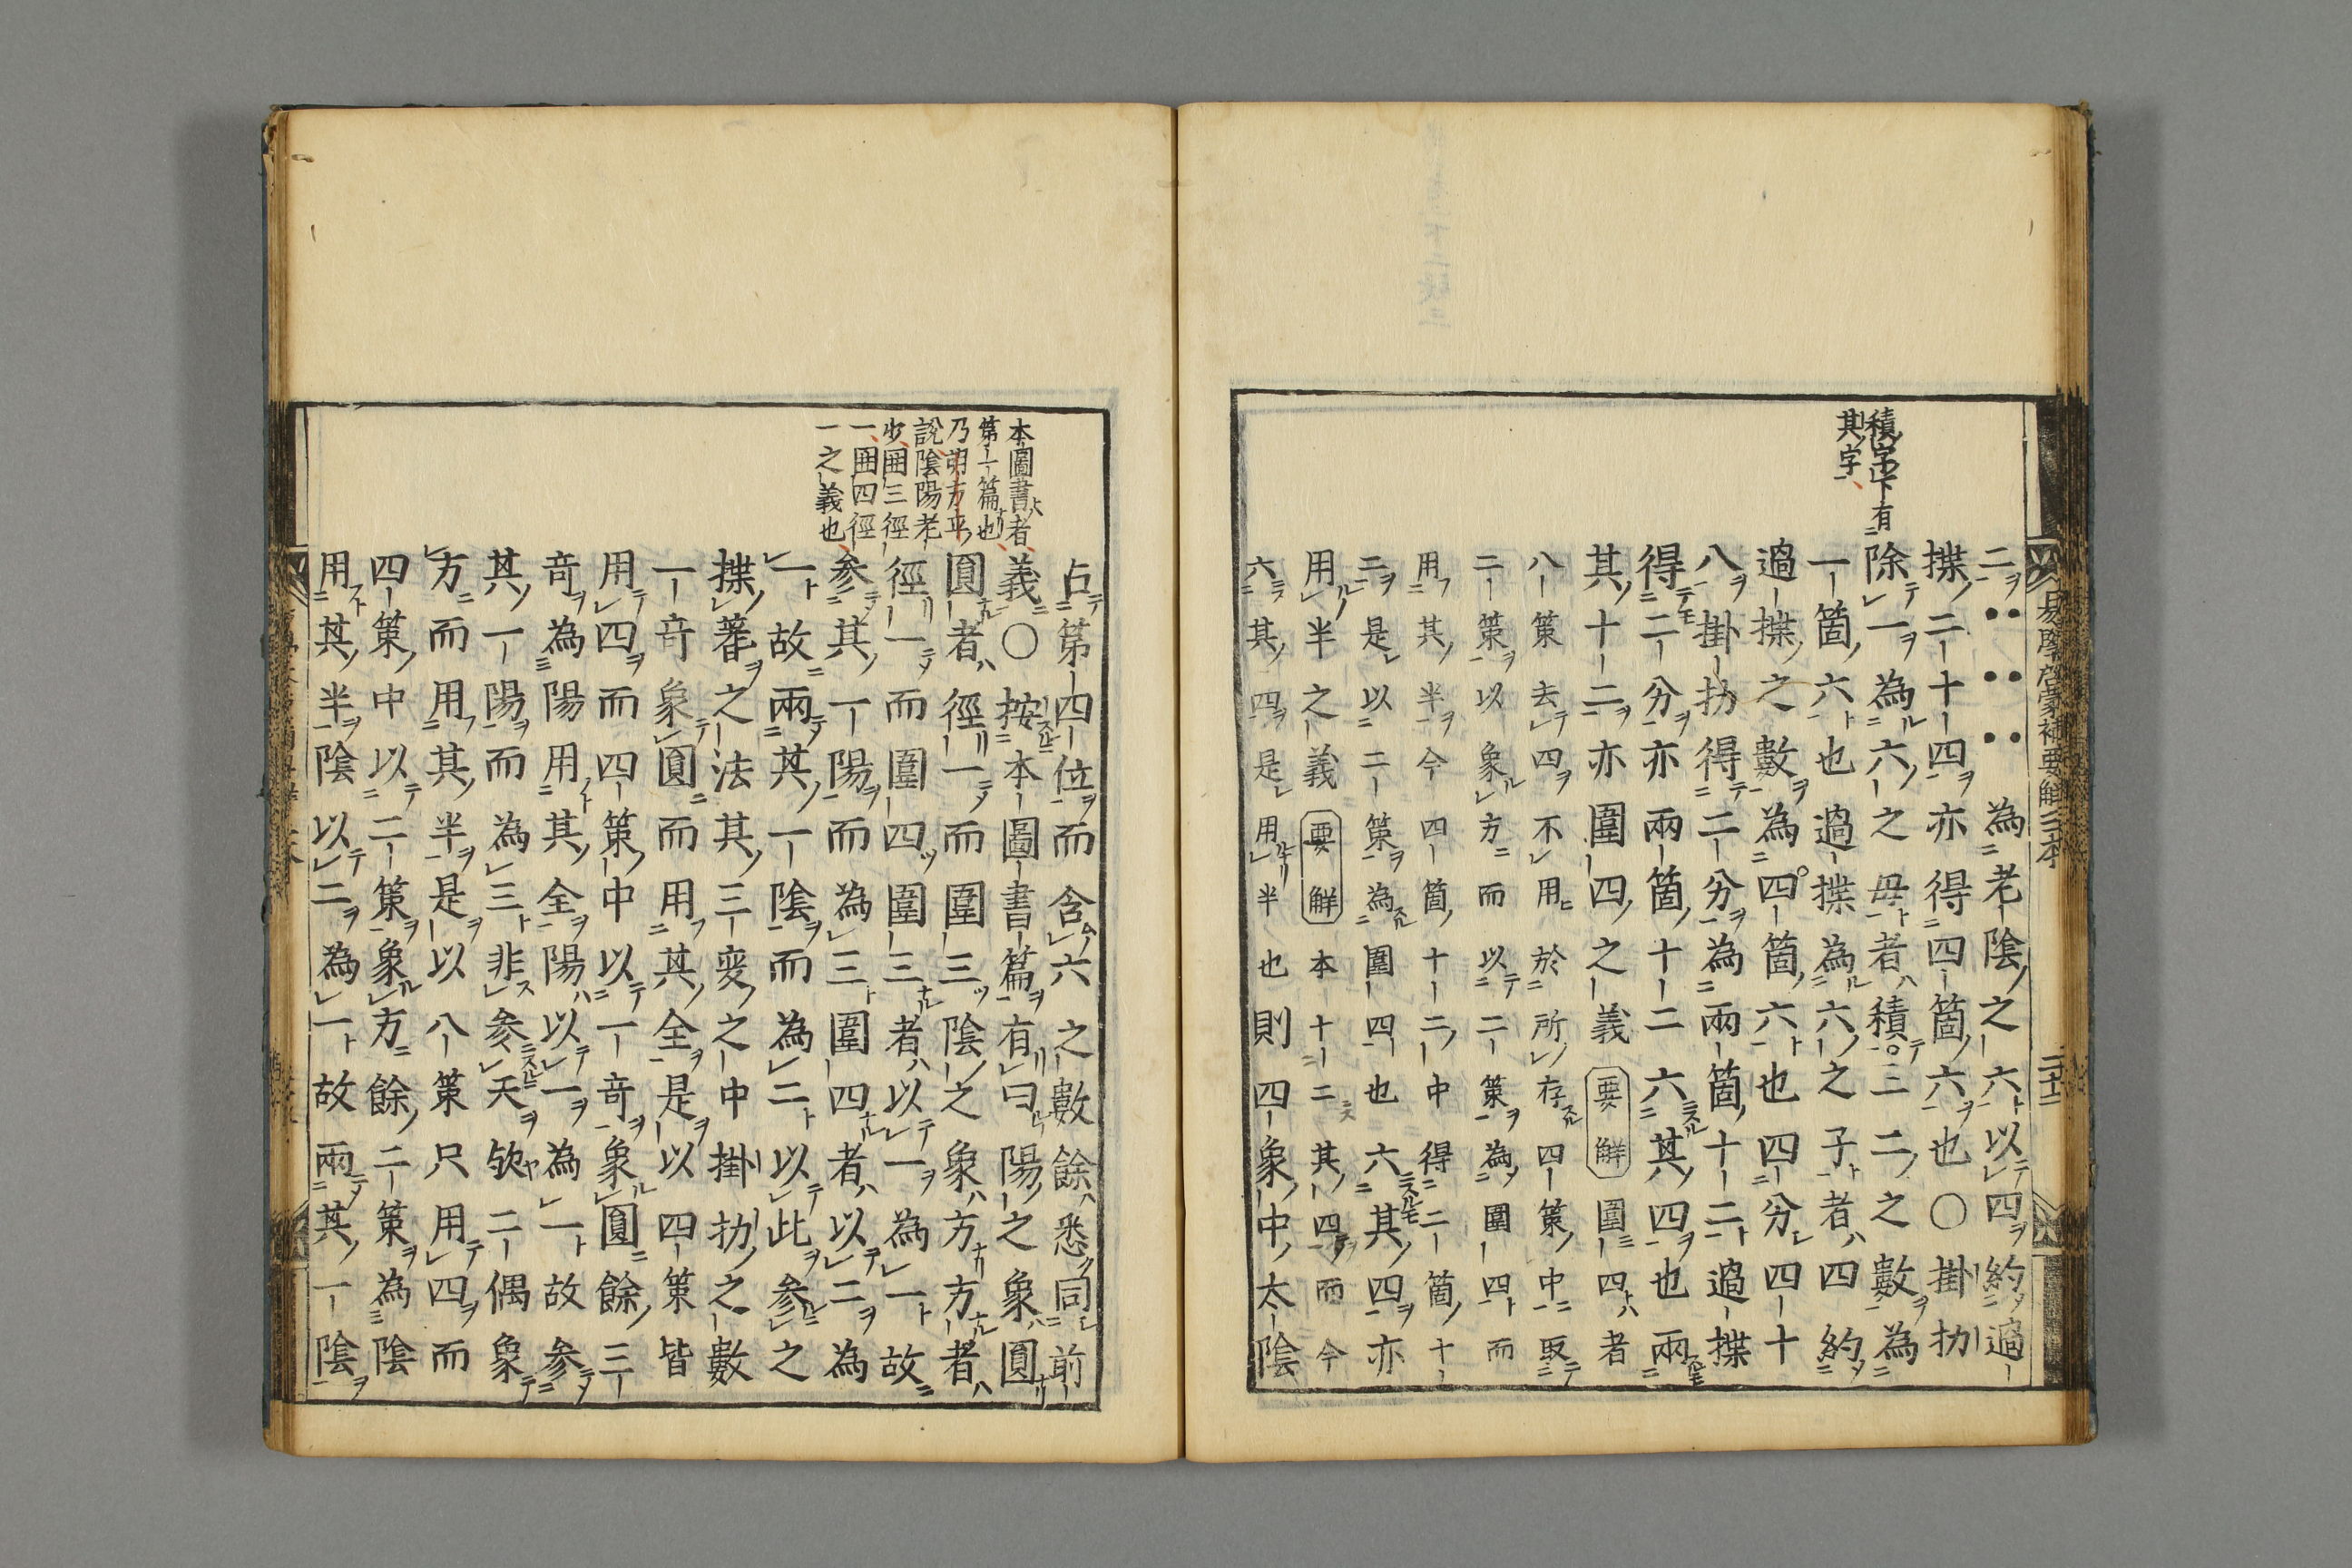 易學啓蒙補要解三本 二十二
積字下有
其字
二●●●●●●為老陰之六以四約過
揲二十四亦得四箇六也〇掛扐
除一為六之母者積三二之數為
一箇六也過揲為六之子者四約
過揲之數為四箇六也四分四十
八掛扐得二分為兩箇十二過揲
得二分亦兩箇十二六其四也兩
其十二亦圍四之義 要解 圍四者
八策去四不用於所存四策中取
二策以象方而以二策為圍四而
用其半今四箇十二中得二箇十
二是以二策為圍四也六其四亦
用半之義 要解 本十二其四而今
六其四是用半也則四象中太陰
本圖書者
第一篇也
乃明方平
說陰陽老
少囲三徑
一囲四徑
一之義也
占第四位而含六之數餘悉同前
義〇按本圖書篇有曰陽之象圓
圓者徑一而圍三陰之象方方者
徑一而圍四圍三者以一為一故
參其一陽而為三圍四者以二為
一故兩其一陰而為二以此參之
揲蓍之法其三變之中掛扐之數
一奇象圓而用其全是以四策皆
用四而四策中以一奇象圓餘三
奇為陽用其全陽以一為一故參
其一陽而為三非參天欤二偶象
方而用其半是以八策只用四而
四策中以二策象方餘二策為陰
用其半陰以二為一故兩其一陰